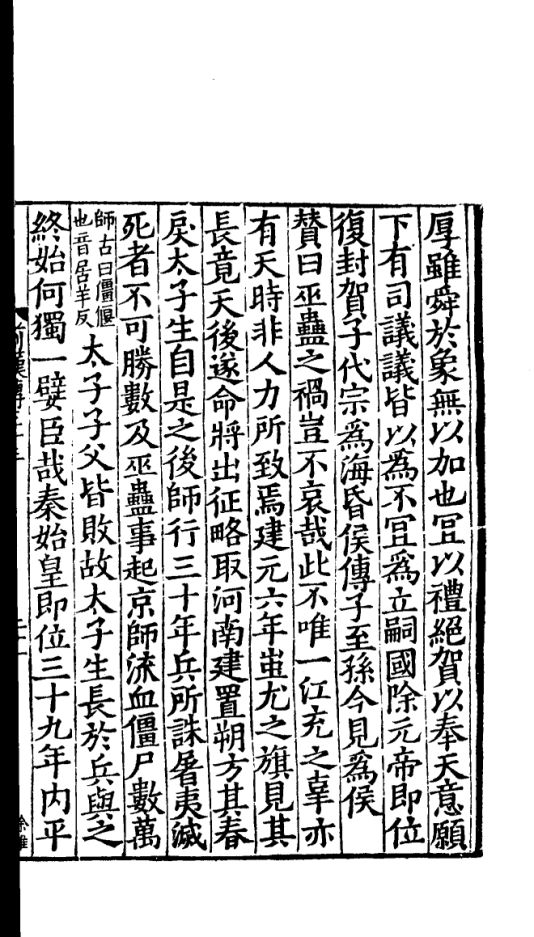 厚雖舜於象無以加也宜以禮絕賀以奉天意願
下有司議議皆以為不宜為立嗣國除元帝即位
復封賀子代宗為海昏侯傳子至孫今見為侯
贊曰巫蠱之禍豈不哀哉此不唯一江充之辠亦
有天時非人力所致焉建元六年蚩尤之旗見其
長竟天後遂命將出征略取河南建置朔方其春
戾太子生自是之後師行三十年兵所誅屠夷滅
死者不可勝數及巫蠱事起京師流血僵尸數萬
師古曰僵偃
也音居羊反
太子子父皆敗故太子生長於兵與之
終始何獨一嬖臣哉秦始皇即位三十九年内平
前漢傳三十三